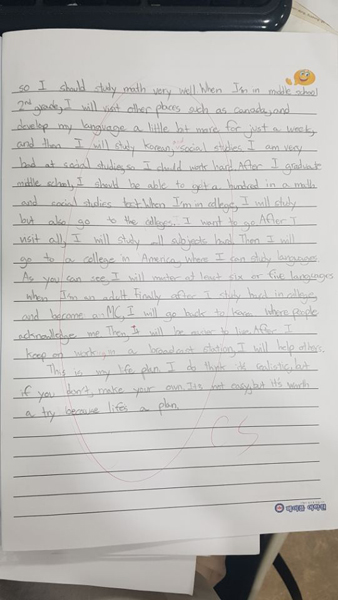 so I should study math very well. When I'm in middle school
2nd grade, I will visit other places such as Canada, and
develop my language a little bit more for just a week,
and then I will study Korean, social studies. I am very
bad at social studies, so I should work hard. After I graduate
middle school, I should be able to get a hundred in a math
and social studies test. When I'm in college, I will study
but also go to the colleges I want to go. After I
visit all, I will study all subjects hard. Then I will
go to a college in America, where I can study languages.
As you can see, I will master at least six or five languages
when I'm an adult. Finally after I study hard in colleges,
and become a MC, I will go back to Korea where people
acknowledge me. Then, It will be easier to live. After I
keep on work in a broadcast station, I will help others.
This is my life plan. I do think it's realistic, but
if you don't, make your own. It's not easy, but it's worth
a try because life's a plan.
CS